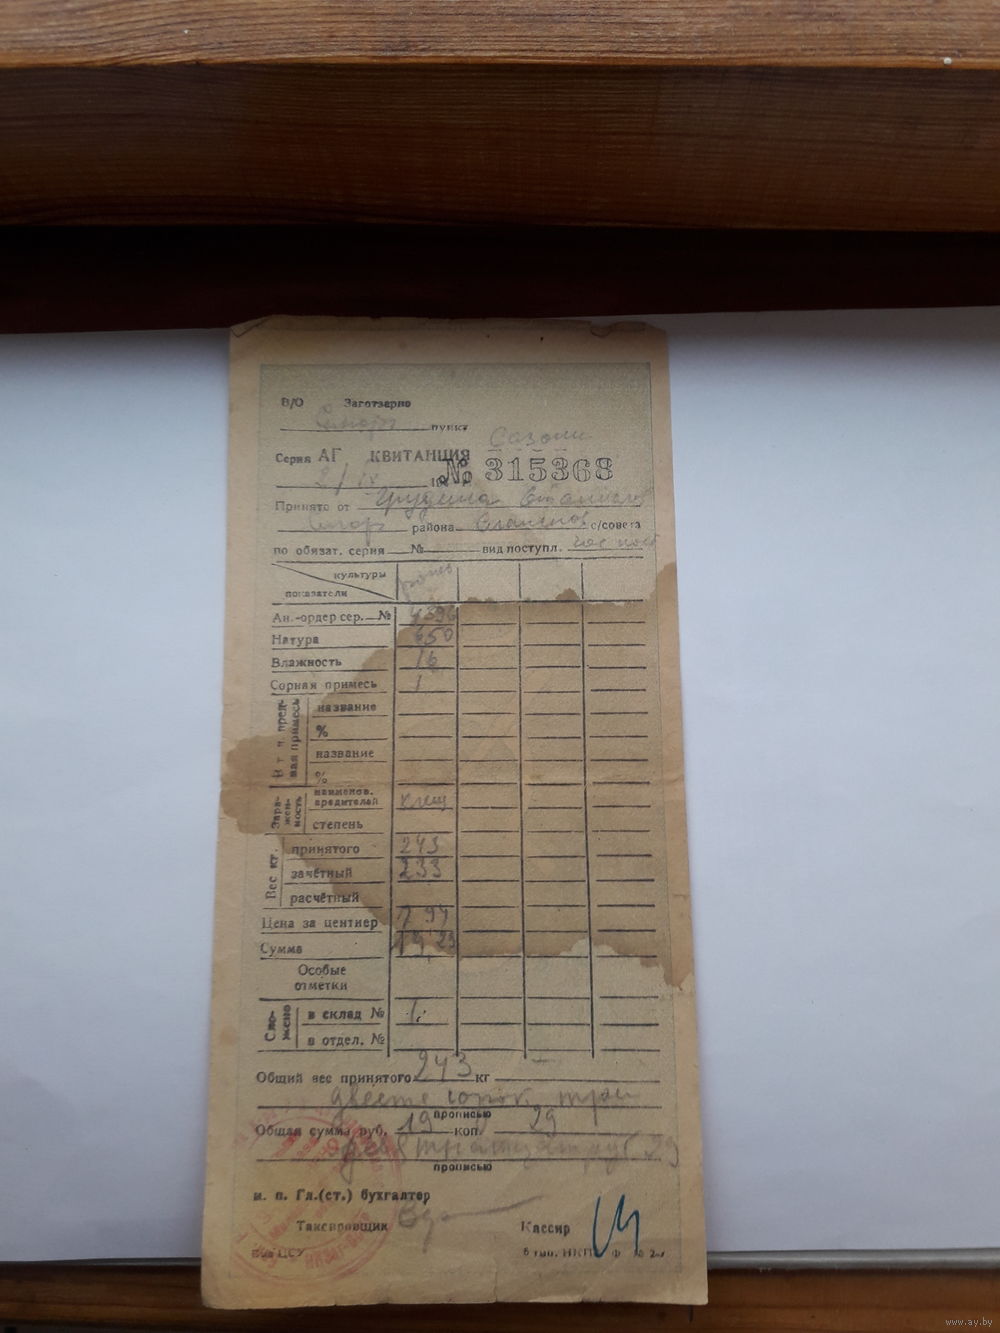 В/О Заготзерно
пункт
Сазони
Серия АГ КВИТАНЦИЯ № 315368
2/IX
Принято от
района с/совета
по обязат. серия № вид поступл.
культуры
показатели
Ан.-ордер сер. № 4396
Натура 650
Влажность 16
Сорная примесь 1
В т. ч. вред- ная примесь
название
%
название
%
Зара- жен- ность
наименов. вредителей клещ
степень
Вес кг.
принятого 243
зачётный 233
расчётный
Цена за центнер 7 94
Сумма 19 29
Особые
отметки
Сло- жено
в склад № 1
в отдел. №
Общий вес принятого 243 кг
двести сорок три
прописью
Общая сумма руб. 19 коп. 29
прописью
м. п. Гл.(ст.) бухгалтер
Таксировщик Кассир
6 тип. НКП
www.ay.by